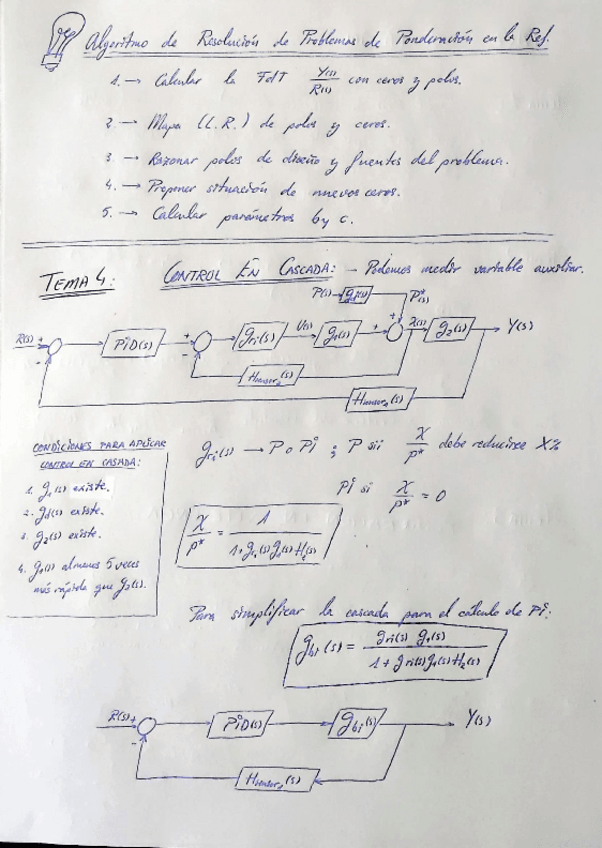 Algoritmo de Resolución de Problemas de Ponderación en la Ref.
1. → Calcular la FdT Y(s)/R(s) con ceros y polos.
2. → Mapa (L.R.) de polos y ceros.
3. → Razonar polos de diseño y fuentes del problema.
4. → Proponer situación de nuevos ceros.
5. → Calcular parámetros b y c.
TEMA 4: CONTROL EN CASCADA: - Podemos medir variable auxiliar.
P(s) gd(s) P*(s)
R(s) + - PiD(s) + - gri(s) U(s) g1(s) + + X(s) g2(s) Y(s)
Hsensor2(s)
Hsensor1(s)
CONDICIONES PARA APLICAR
CONTROL EN CASADA:
1. g1(s) existe.
2. gd(s) existe.
3. g2(s) existe.
4. g1(s) almenos 5 veces
más rápida que g2(s).
gri(s) → P o Pi ; P sii X/P* debe reducirse X%
Pi si X/P* = 0
X/P* = 1/1+gri(s)g1(s)H2(s)
Para simplificar la cascada para el cálculo de Pi:
gbi(s) = gri(s) g1(s)/1+gri(s)g1(s)H2(s)
R(s) + - PiD(s) gbi(s) Y(s)
Hsensor1(s)